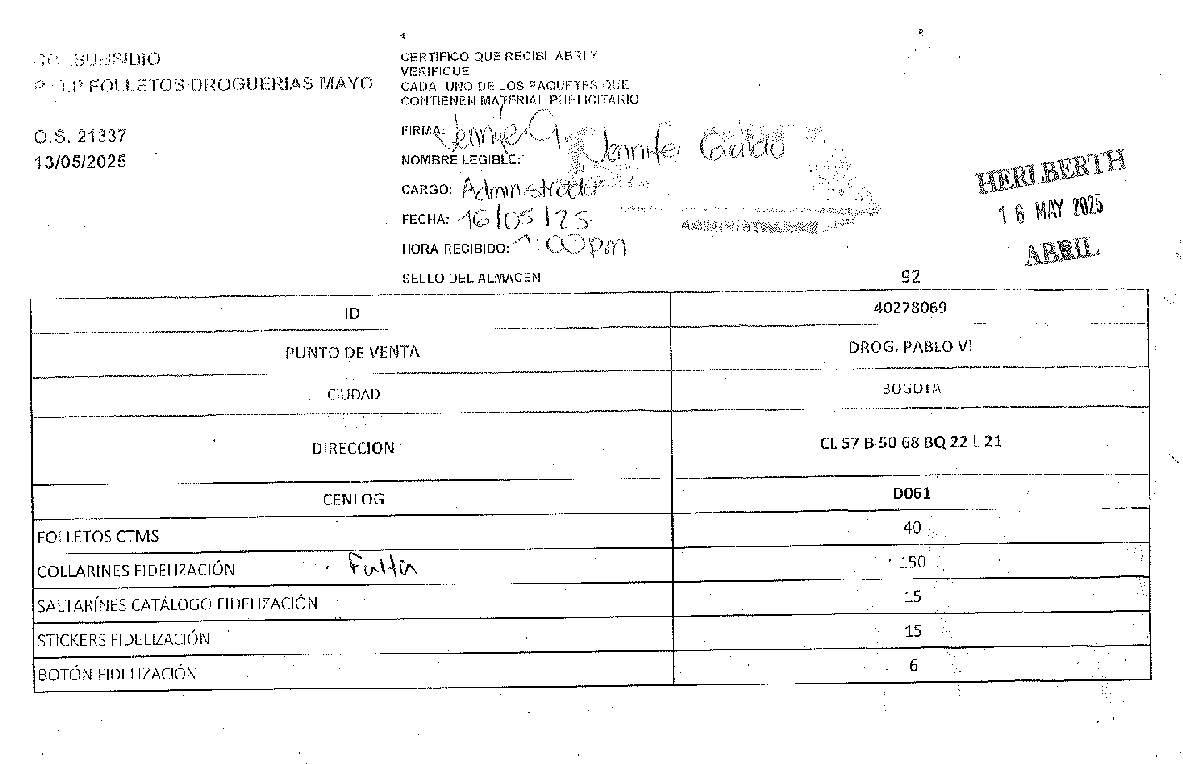 SUBSIDIO
FOLLETOS DROGUERIAS MAYO
O.S. 21337
13/05/2025
CERTIFICO QUE RECIBI ABRI Y
VERIFIQUE
CADA UNO DE LOS PAQUETES QUE
CONTIENEN MATERIAL PUBLICITARIO
FIRMA:
NOMBRE LEGIBLE: Jennifer
CARGO: Administrador
FECHA: 16/05/25
HORA RECIBIDO: :00pm
SELLO DEL ALMACEN
ADMINISTRADOR
HERLBERTH
16 MAY 2025
ABRIL
92
ID 40278069
PUNTO DE VENTA DROG. PABLO VI
CIUDAD BOGOTA
DIRECCION CL 57 B 50 68 BQ 22 L 21
CENLOG D061
FOLLETOS CTMS 40
COLLARINES FIDELIZACIÓN Falta 150
SALTARÍNES CATÁLOGO FIDELIZACIÓN 15
STICKERS FIDELIZACIÓN 15
BOTÓN FIDELIZACIÓN 6